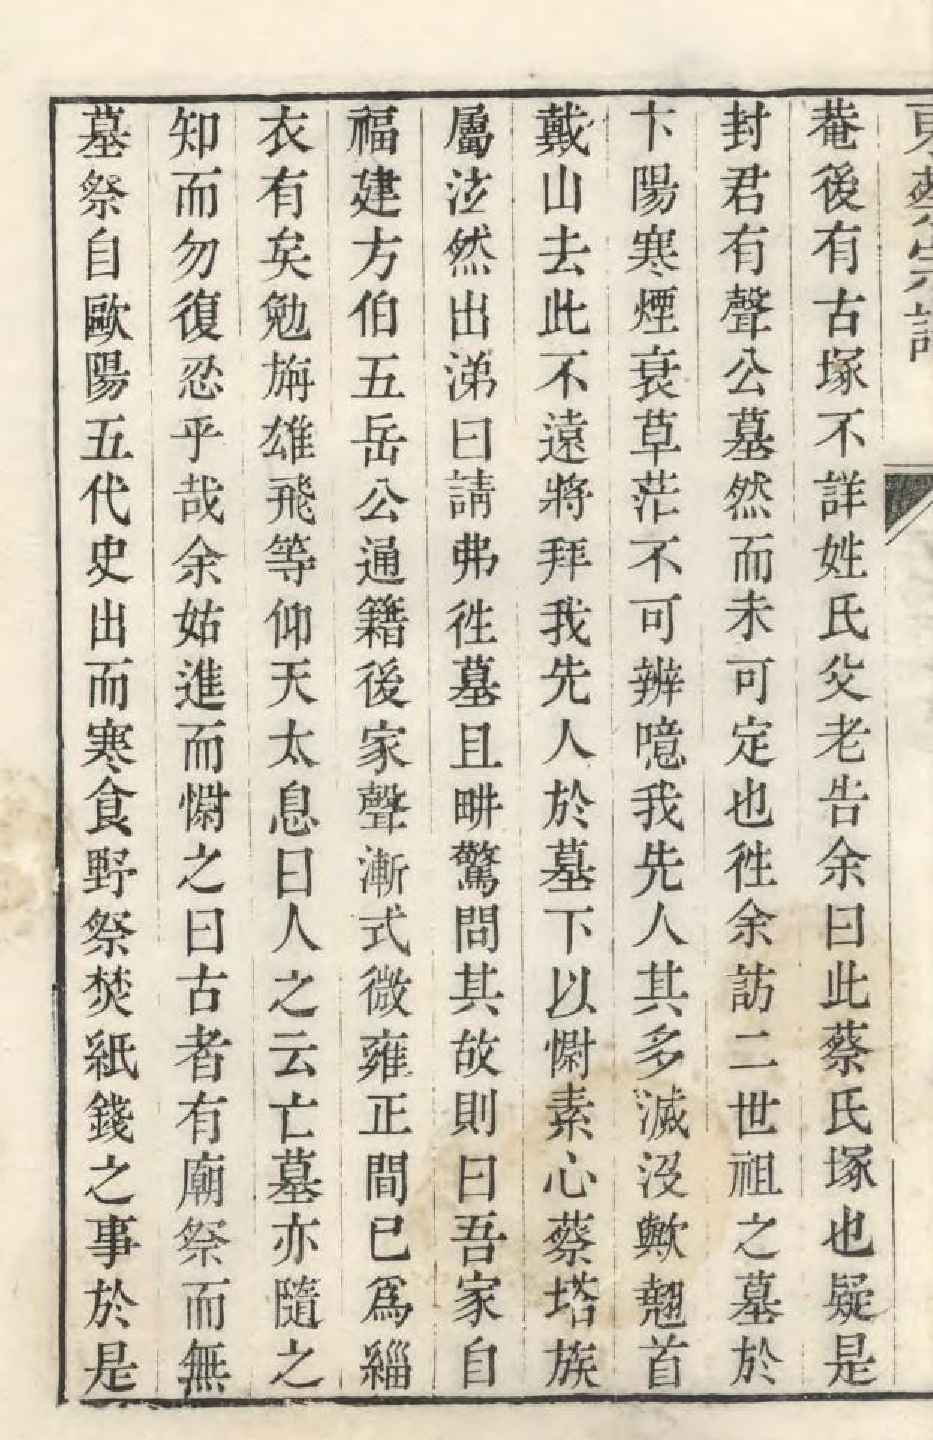 東蔡宗譜
菴後有古塚不詳姓氏父老告余曰此蔡氏塚也疑是
封君有聲公墓然而未可定也徃余訪二世祖之墓於
卞陽寒煙衰草茫不可辨噫我先人其多滅沒歟翹首
戴山去此不遠將拜我先人於墓下以慰素心蔡塔族
屬泣然出涕曰請弗徃墓且畊驚問其故則曰吾家自
福建方伯五岳公通籍後家聲漸式微雍正間已爲緇
衣有矣勉旃雄飛等仰天太息曰人之云亡墓亦隨之
知而勿復忍乎哉余姑進而慰之曰古者有廟祭而無
墓祭自歐陽五代史出而寒食野祭焚紙錢之事於是